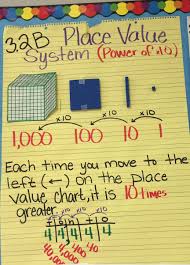 3.2B Place Value
System (Power of 10)
x10 x10 x10
1,000 100 10 1
Each time you move to the
left (←) on the place
value chart, it is 10 times
greater.
x10 x10 x10 x10
4 4 4 4 4
40,000 4,000 400 40